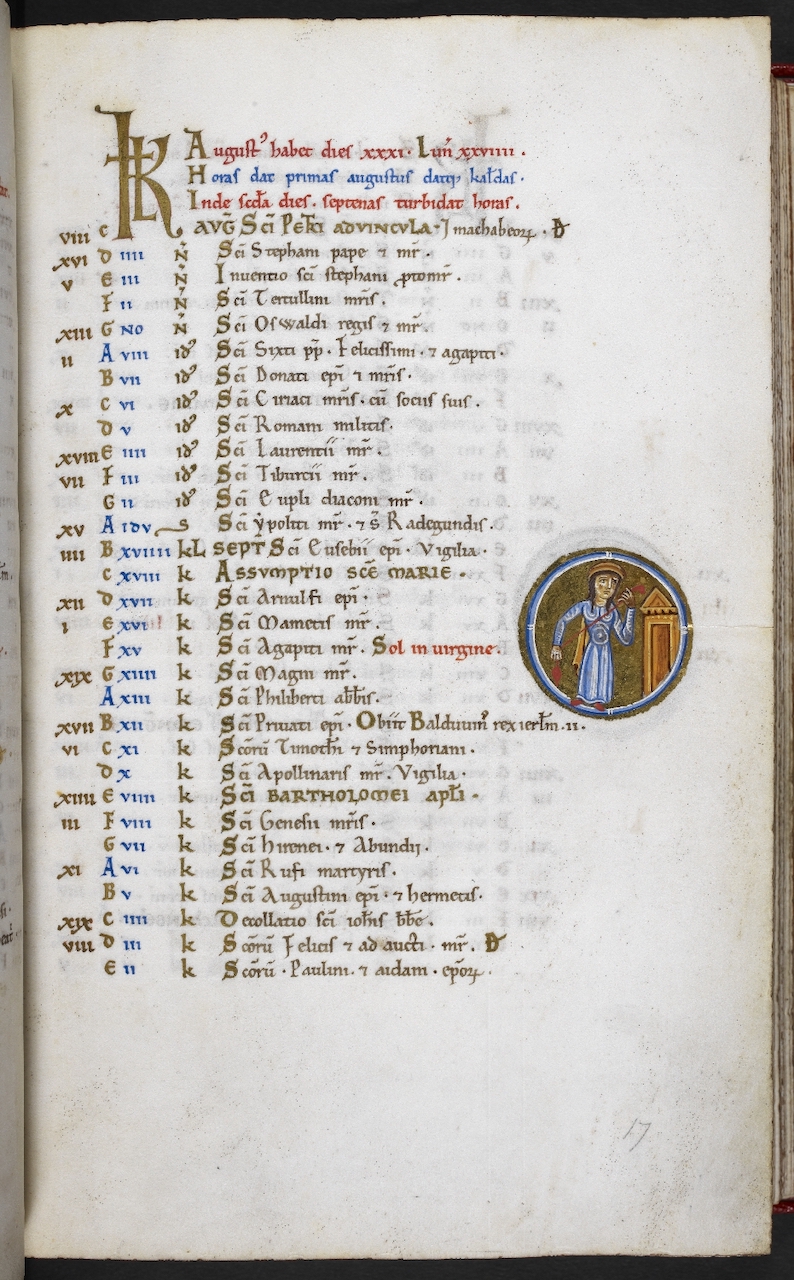 KL Augusť habet dies xxxi. Luñ xxviiii.
Horas dat primas augustus datq; kaƚdas.
Inde scďa dies. septenas turbidat horas.
viii c AVG̃ Sc̃i Petri ADVINCVLA. I machabeoꝝ. D
xvi D iiii Ñ Sc̃i Stephani pape ⁊ mr̃.
v E iii Ñ Inventio sc̃i stephani ꝓtomr̃.
F ii Ñ Sc̃i Tertullini mr̃is.
xiii G NO Ñ Sc̃i Oswaldi regis ⁊ mr̃.
ii A viii iď Sc̃i Sixti pp̃. Felicissimi. ⁊ agapiti.
B vii iď Sc̃i Donati ep̃i ⁊ mr̃is.
x C vi iď Sc̃i Ciriaci mr̃is. cũ sociis suis.
D v iď Sc̃i Romani militis.
xviii E iiii iď Sc̃i Laurentii mr̃.
vii F iii iď Sc̃i Tiburtii mr̃.
G ii iď Sc̃i Eupli diaconi mr̃.
xv A idv s Sc̃i ẏpoliti mr̃. ⁊ s̃ Radegundis.
iiii B xviiii kL SEPT̃ Sc̃i Eusebii ep̃i. Vigilia.
C xviii k ASSVMPTIO SC̃E MARIE.
xii D xvii k Sc̃i Arnulfi ep̃i.
i E xvi k Sc̃i Mametis mr̃.
F xv k Sc̃i Agapiti mr̃. Sol in uirgine.
xix G xiiii k Sc̃i Magni mr̃.
A xiii k Sc̃i Philiberti abb̃is.
xvii B xii k Sc̃i Priuati ep̃i. Obiit Balduuinꝰ rex ierƚm. ii.
vi C xi k Sc̃orũ Timothi ⁊ Simphoriani.
D x k Sc̃i Apollinaris mr̃. Vigilia.
xiiii E viiii k Sc̃i BARTHOLOMEI apƚi.
iii F viii k Sc̃i Genesii mr̃is.
G vii k Sc̃i hirenei. ⁊ Abundii.
xi A vi k Sc̃i Rufi martyris.
B v k Sc̃i Augustini ep̃i. ⁊ hermetis.
xix C iiii k Decollatio sc̃i ioh̃is bb̃e.
viii D iii k Sc̃orũ Felicis ⁊ adaucti. mr̃. D
E ii k Sc̃orũ. Paulini. ⁊ aidani. ep̃oꝝ.
17